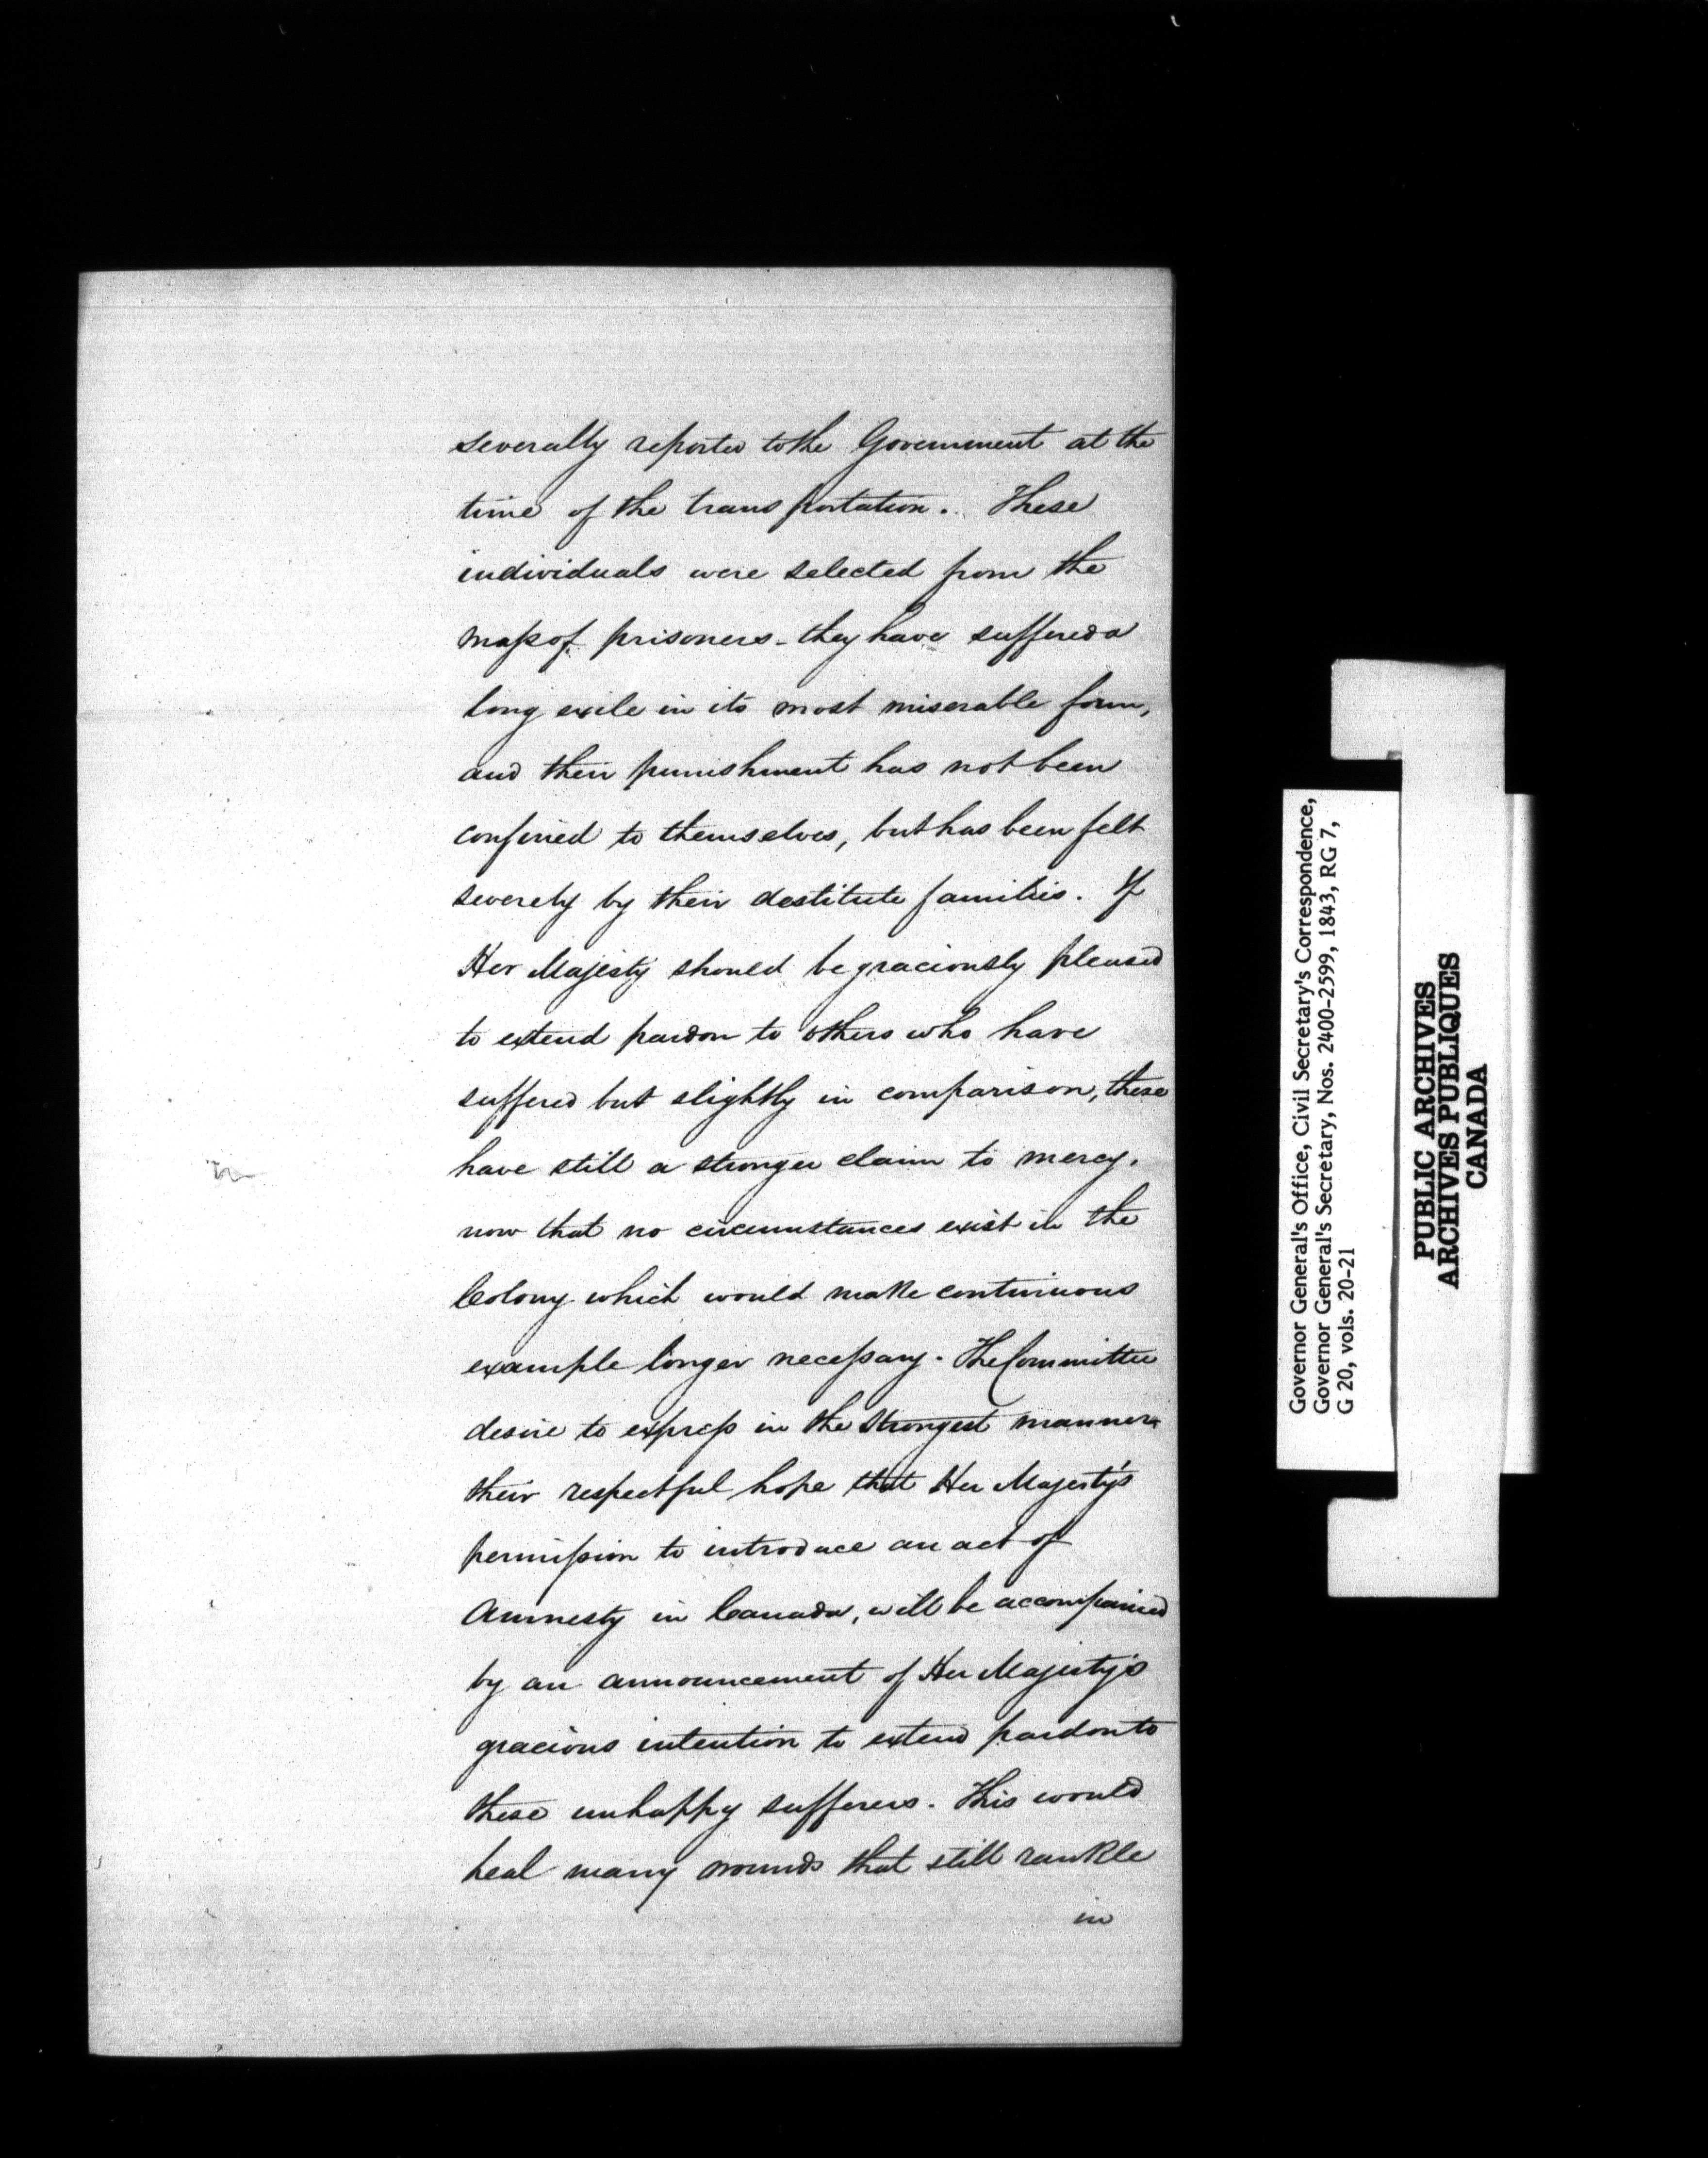 severally reported to the Government at the
time of the transportation. These
individuals were selected from the
mass of prisoners - they have suffered a
long exile in its most miserable form,
and their punishment has not been
confined to themselves, but has been felt
severely by their destitute families. If
Her Majesty should be graciously pleased
to extend pardon to others who have
suffered but slightly in comparison, these
have still a stronger claim to mercy,
now that no circumstances exist in the
Colony which would make continuous
example longer necessary. The Committee
desire to express in the strongest manner
their respectful hope that Her Majesty's
permission to introduce an act of
Amnesty in Canada, will be accompanied
by an announcement of Her Majesty's
gracious intention to extend pardon to
these unhappy sufferers. This would
heal many wounds that still rankle
in
Governor General's Office, Civil Secretary's Correspondence,
Governor General's Secretary, Nos. 2400-2599, 1843, RG 7,
G 20, vols. 20-21
PUBLIC ARCHIVES
ARCHIVES PUBLIQUES
CANADA